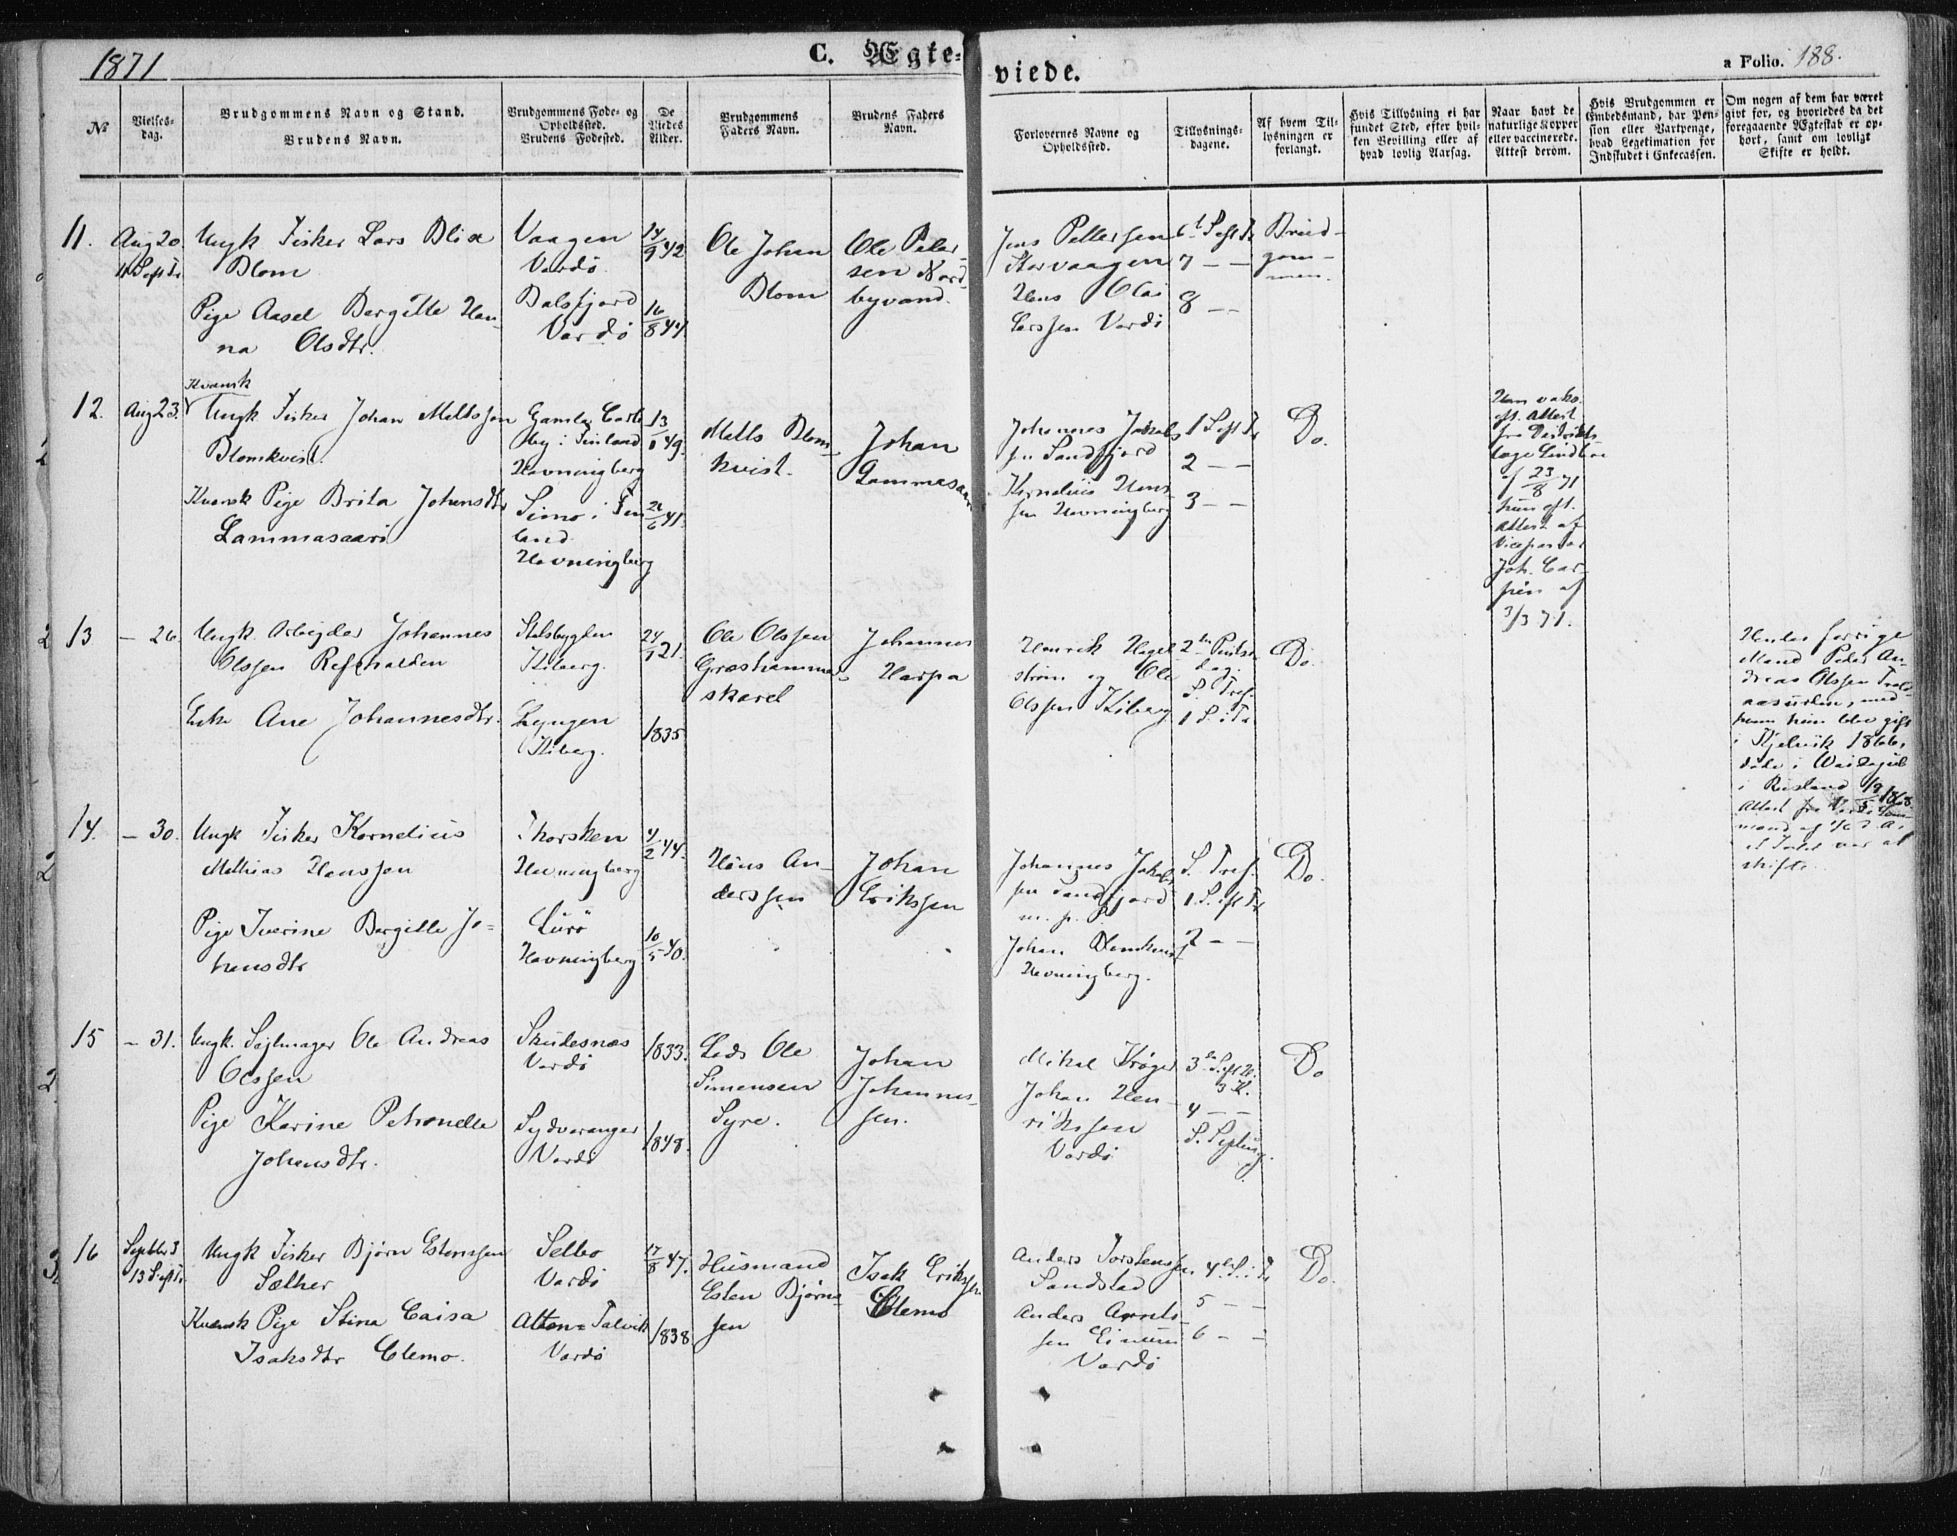 1871
C. Ægte-
viede.
a Folio. 188.
No
Vielses-
dag.
Brudgommens Navn og Stand.
Brudens Navn.
Brudgommens Føde- og
Opholdssted.
Brudens Fødested.
De
Viedes
Alder.
Brudgommens
Faders Navn.
Brudens Faders
Navn.
Forlovernes Navne og
Opholdssted.
Tillysnings-
dagene.
Af hvem Til-
lysningen er
forlangt.
Hvis Tillysning ei har
fundet Sted, efter hvil-
ken Bevilling eller af
hvad lovlig Aarsag.
Naar havt de
naturlige Kopper
eller vaccinerede.
Attest derom.
Hvis Brudgommen er
Embedsmand, har Pen-
sion eller Vartpenge,
hvad Legetimation for
Indskudet i Enkecassen.
Om nogen af dem har været
givt for, og hvorledes da det
foregaaende Ægteskab er op-
hört, samt om lovligt
Skifte er holdt.
11.
Aug 20.
11 S eft Tr
Ungk Fisker Lars Blix
Blom
Pige Aasel Bergitte Han-
na Olsdtr.
Vaagen
Vardö
Balsfjord
Vardö
14/9 42
16/8 44
Ole Johan
Blom
Ole Peter
sen Nord-
byvand.
Jens Pettersen
Storvaagen
Hans Olai
Larssen Vardö
6te S eft Tr
7 — —
8 — —
Brud-
gom-
men.
12.
Aug 23.
Kvensk
Ungk Fisker Johan Mattssen
Blomkvist.
Kvensk Pige Brita Johansdtr
Lammasaari
Gamla Carle
by i Finland
Havningberg
Simo i Fin
land
Havningberg
49.
41.
Matts Blom
kvist.
Johan
Lammasaari
Johannes Jakob
sen Sandfjord
Kornelius Hans
sen Havningberg
1 S eft Tr
2 — —
3 — —
Do.
Han vakc.
eft. Attest
fra Distrikts
læge Lindboe
af 23/8 71
hun eft.
Attest af
Vicepastor
Joh. Car-
pén af
3/3 71.
13
— 26.
Ungk. Arbejder Johannes
Olssen Refsnalden
Enke Ane Johannesdtr.
Kiberg.
Lyngen
Kiberg.
21.
1835
Ole Olssen
Græshamma
skarel
Johannes
Harpa
Henrik Hagel
ström og Ole
Olssen Kiberg
2den Pintse
dag.
S. Tref.
1 S. i Tr
Do.
Hendes forrige
Mand Peder An-
dreas Olssen
med
hvem hun blev gift
i Kjelvik 1866,
döde i
i Rusland 1868
Attest fra Vardö
mand af
at Intet var at
skifte.
14.
— 30.
Ungk Fisker Kornelius
Mathias Hanssen
Pige Iverine Bergitte Jo-
hansdtr
Thorsken
Havningberg
Lurö
Havningberg
4/2 44.
10/5 40.
Hans An-
derssen
Johan
Eriksen
Johannes Jakob
sen Sandfjord
m. p. P.
Johan Blomkvist
Havningberg.
S. Tref.
1 S. eft Tr
2 — —
Do.
15
— 31.
Ungk. Sejlmager Ole Andreas
Olssen
Pige Karine Petronelle
Johansdtr.
Skudesnæs
Vardö
Sydvaranger
Vardö
1833.
1848.
Lods Ole
Simensen
Syre.
Johan
Johannes-
sen.
Mikal Kröger
Johan Hen-
riksen
Vardö
4 — —
Do
16
Septbr 3
13 S eft Tr
Ungk Fisker Björn Estensen
Sæther
Kvensk Pige Stina Caisa
Isaksdtr Clemo.
Selbo
Vardö
Alten-Talvik
Vardö
17/8 47.
1838
Husmand
Esten Björn-
sen
Isak Eriksen
Clemo
Anders Torstensen
Sandstad
Anders Arnts-
sen Einum
Vardö
4de S. i Tr
5 — —
6 — —
Do.